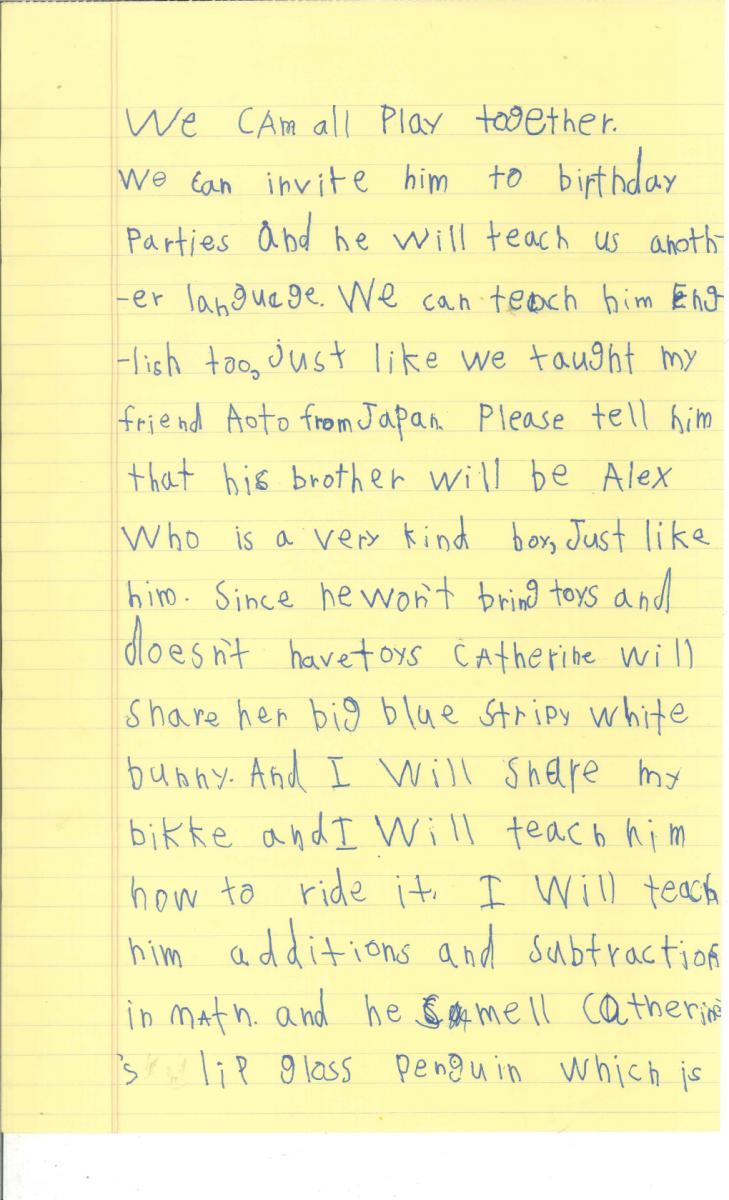 We CAm all Play together.
We can invite him to birthday
Parties and he will teach us anoth-
-er language. We can teach him Eng
-lish too, just like we taught my
friend Aoto from Japan. Please tell him
that his brother will be Alex
Who is a very kind boy, Just like
him. Since he won't bring toys and
doesn't have toys CAtherine will
Share her big blue Stripy white
bunny. And I Will Share my
bikke and I Will teach him
how to ride it. I Will teach
him additions and Subtraction
in mAth. and he mell Catherine
's lip gloss Penguin which is